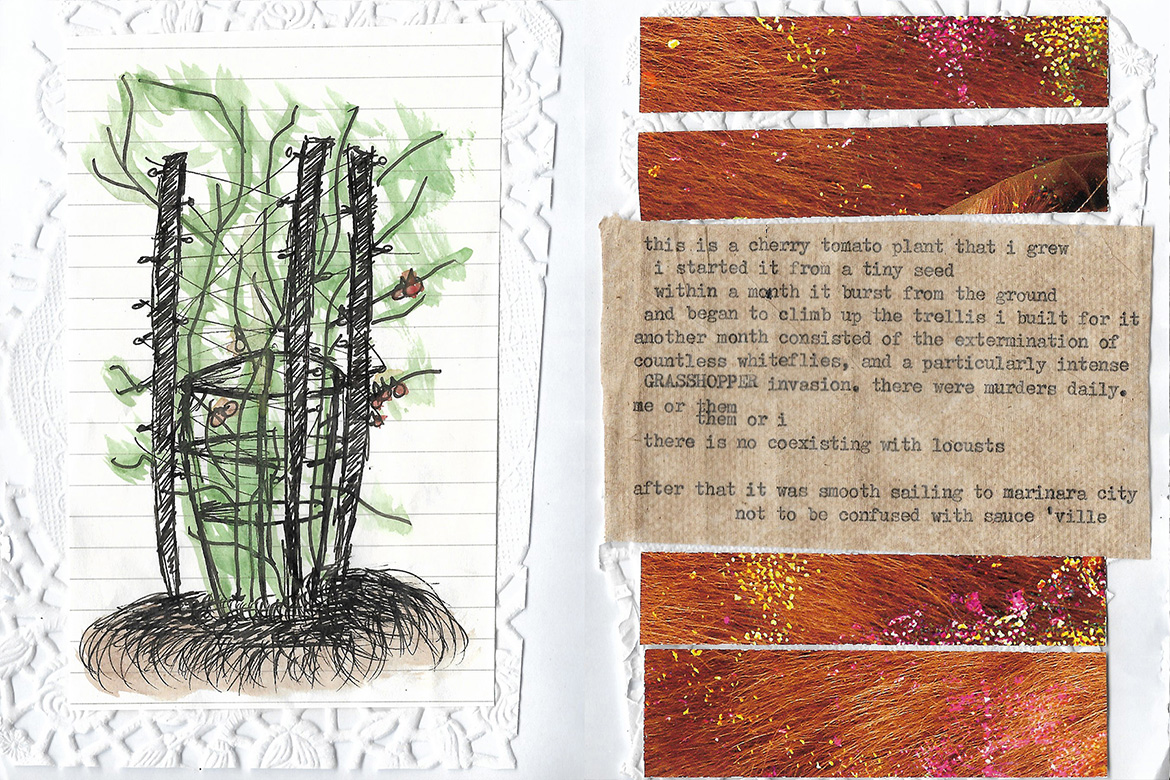 this is a cherry tomato plant that i grew
i started it from a tiny seed
within a month it burst from the ground
and began to climb up the trellis i built for it
another month consisted of the extermination of
countless whiteflies, and a particularly intense
GRASSHOPPER invasion. there were murders daily.
me or them
them or i
there is no coexisting with locusts
after that it was smooth sailing to marinara city
not to be confused with sauce 'ville